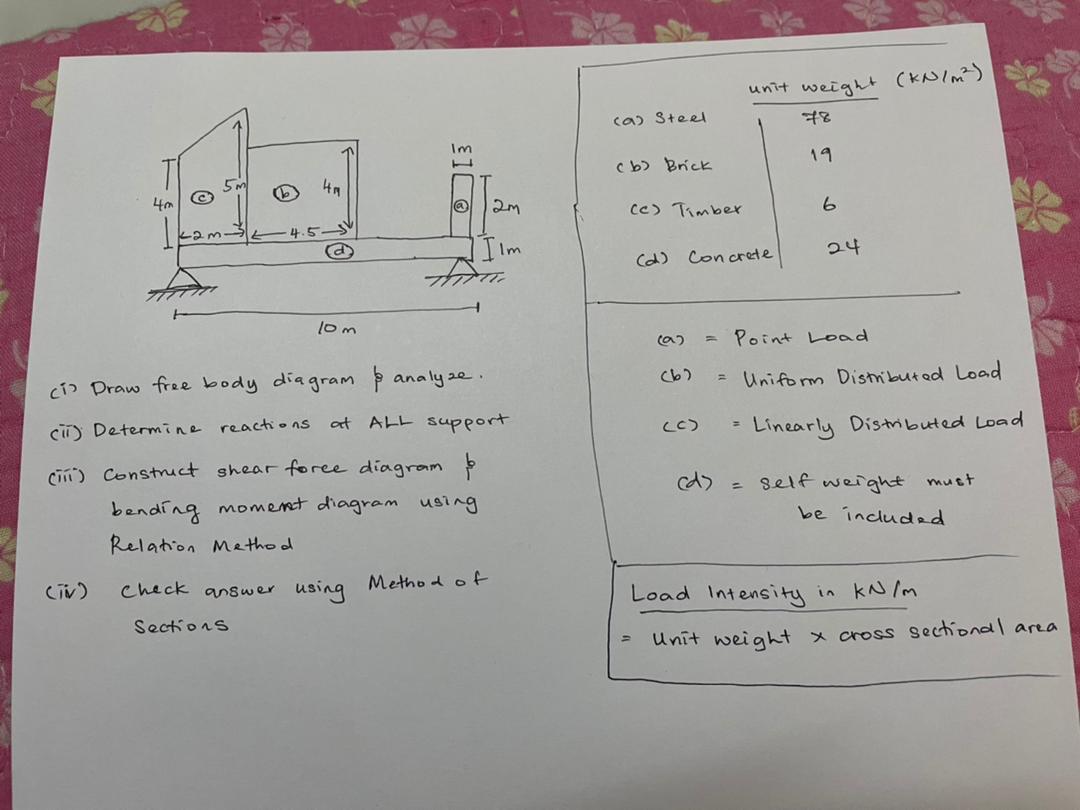 1m
4m
5m
4m
(c)
(b)
(a)
2m
2m
4.5
(d)
1m
10 m
(i) Draw free body diagram & analyze.
(ii) Determine reactions at ALL support
(iii) Construct shear force diagram &
bending moment diagram using
Relation Method
(iv) Check answer using Method of
Sections
unit weight (kN/m²)
(a) Steel 78
(b) Brick 19
(c) Timber 6
(d) Concrete 24
(a) = Point Load
(b) = Uniform Distributed Load
(c) = Linearly Distributed Load
(d) = Self weight must
be included
Load Intensity in kN/m
= Unit weight x cross sectional area